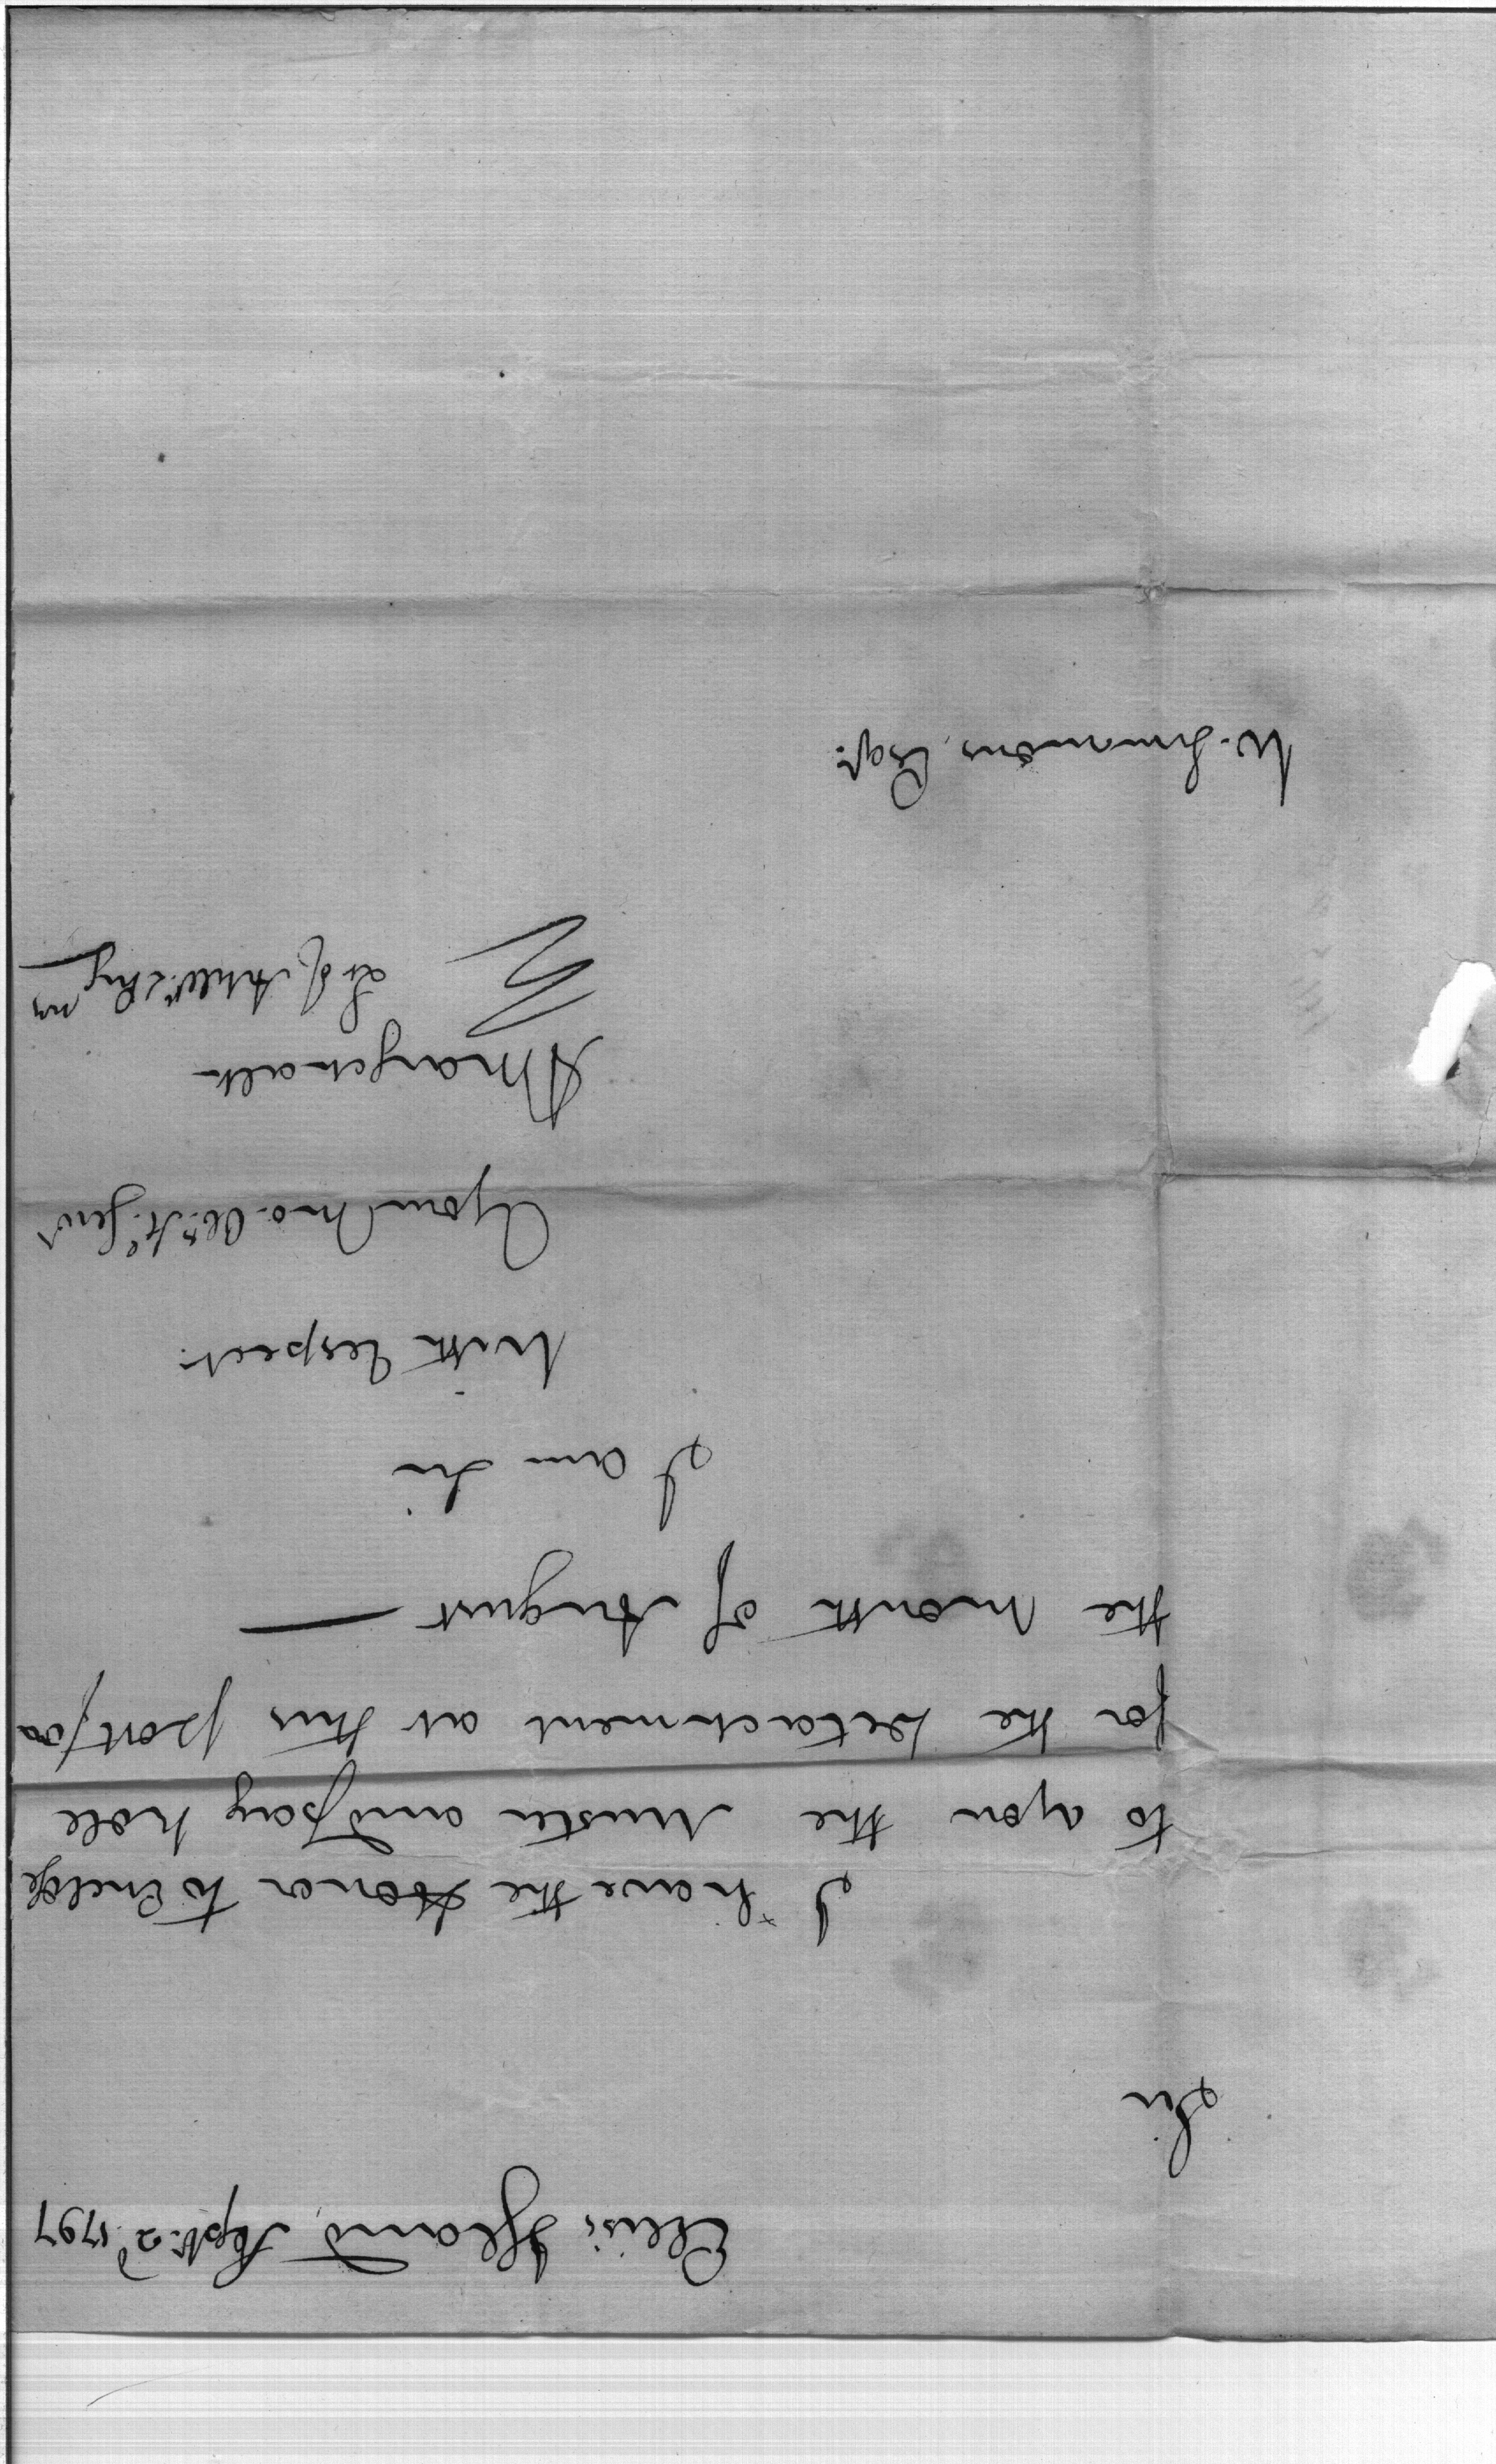 Ellis's Island, Sept. 2d 1797
Sir
I have the Honor to Enclose
to you the Muster and pay Role
for the Detachment at this post for
the Month of August
I am Sir
With Respect.
your mo. Obt. H. Servt
A Marschalk
Lt of Artillr & Engrs
W. Simmons, Esqr.